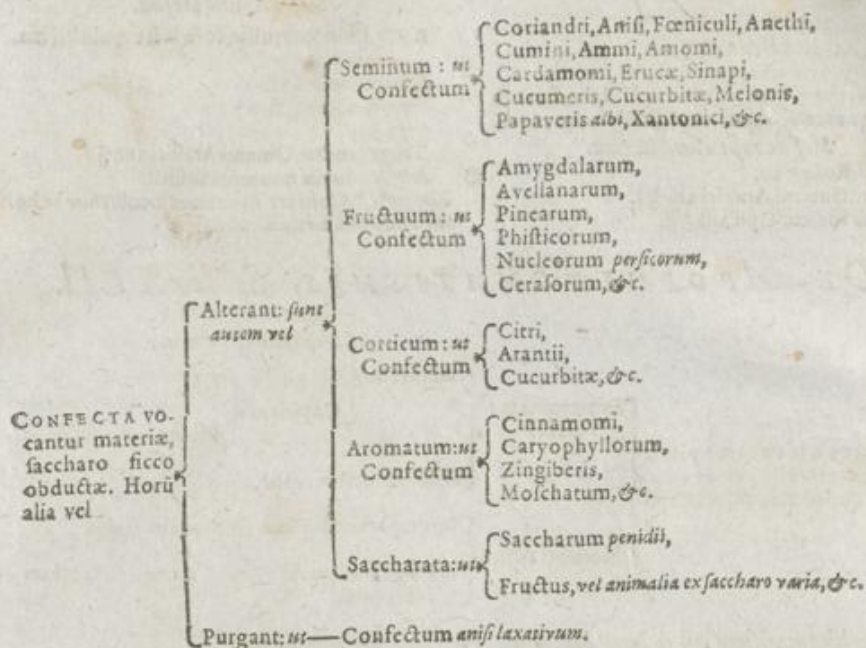 CONFECTA vo-
cantur materiæ,
ſaccharo ſicco
obductæ. Horũ
alia vel
Alterant: ſunt
autem vel
Seminum: ut
Confectum
Coriandri, Aniſi, Fœniculi, Anethi,
Cumini, Ammi, Amomi,
Cardamomi, Erucæ, Sinapi,
Cucumeris, Cucurbitæ, Melonis,
Papaveris albi, Xantonici, &c.
Fructuum: ut
Confectum
Amygdalarum,
Avellanarum,
Pinearum,
Phiſticorum,
Nucleorum perſicorum,
Ceraſorum, &c.
Corticum: ut
Confectum
Citri,
Arantii,
Cucurbitæ, &c.
Aromatum: ut
Confectum
Cinnamomi,
Caryophyllorum,
Zingiberis,
Moſchatum, &c.
Saccharata: ut
Saccharum penidii,
Fructus, vel animalia ex ſaccharo varia, &c.
Purgant: ut — Confectum aniſi laxativum.